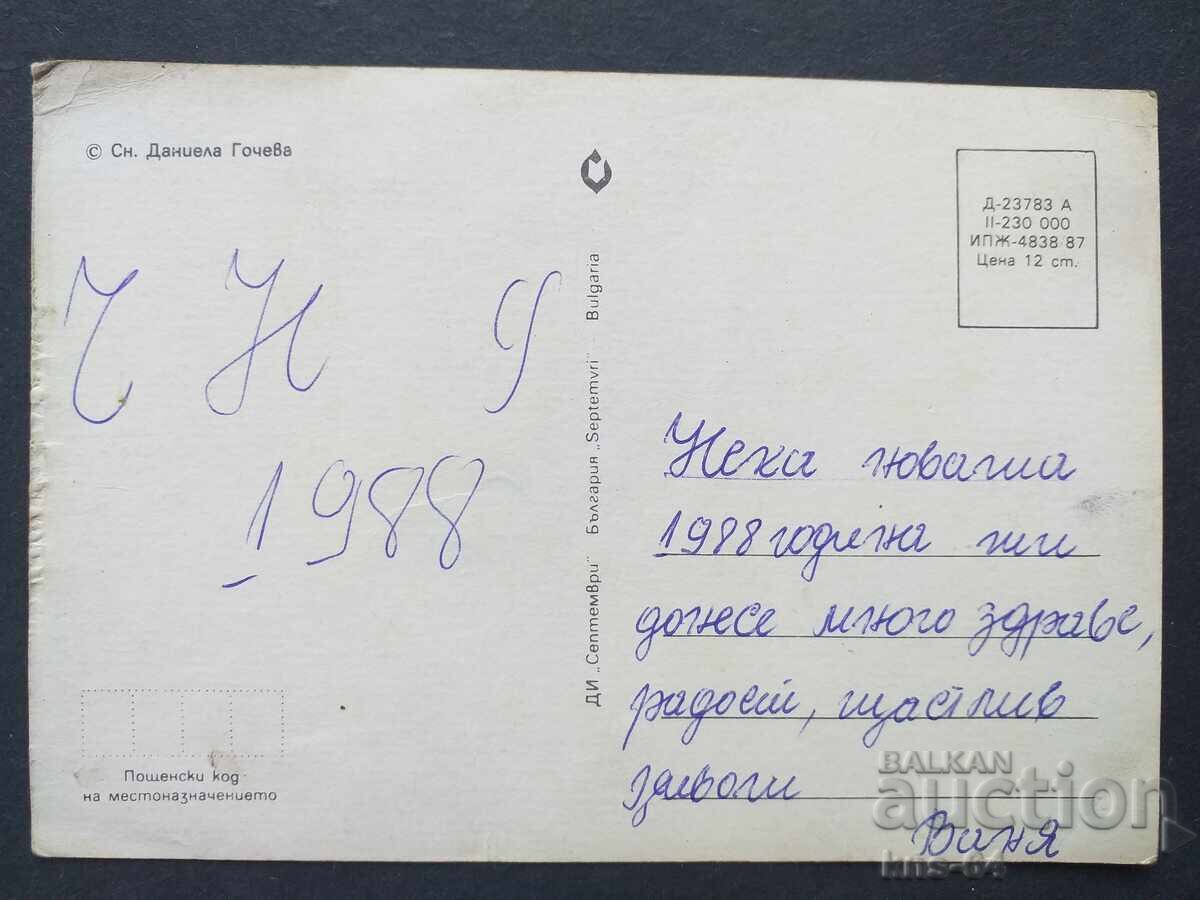 © Сн. Даниела Гочева
Ч Н Г
1988
Пощенски код
на местоназначението
ДИ „Септември" България „Septemvri" Bulgaria
Д-23783 А
II-230 000
ИПЖ-4838 87
Цена 12 ст.
Нека новата
1988 година ти
донесе много здраве,
радост, щастлив
Ваня
BALKAN
auction
kns-64